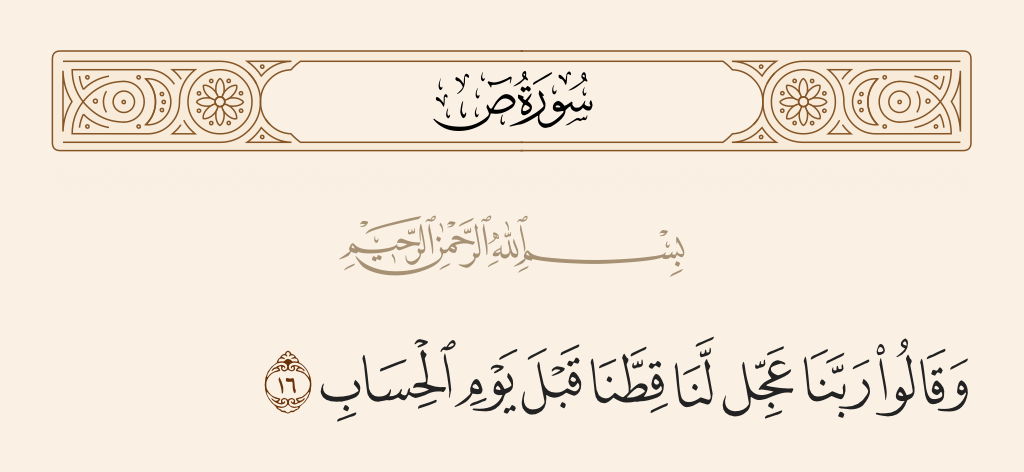 سُورَةُ صٓ
بِسْمِ ٱللَّهِ ٱلرَّحْمَٰنِ ٱلرَّحِيمِ
وَقَالُوا۟ رَبَّنَا عَجِّل لَّنَا قِطَّنَا قَبْلَ يَوْمِ ٱلْحِسَابِ ١٦